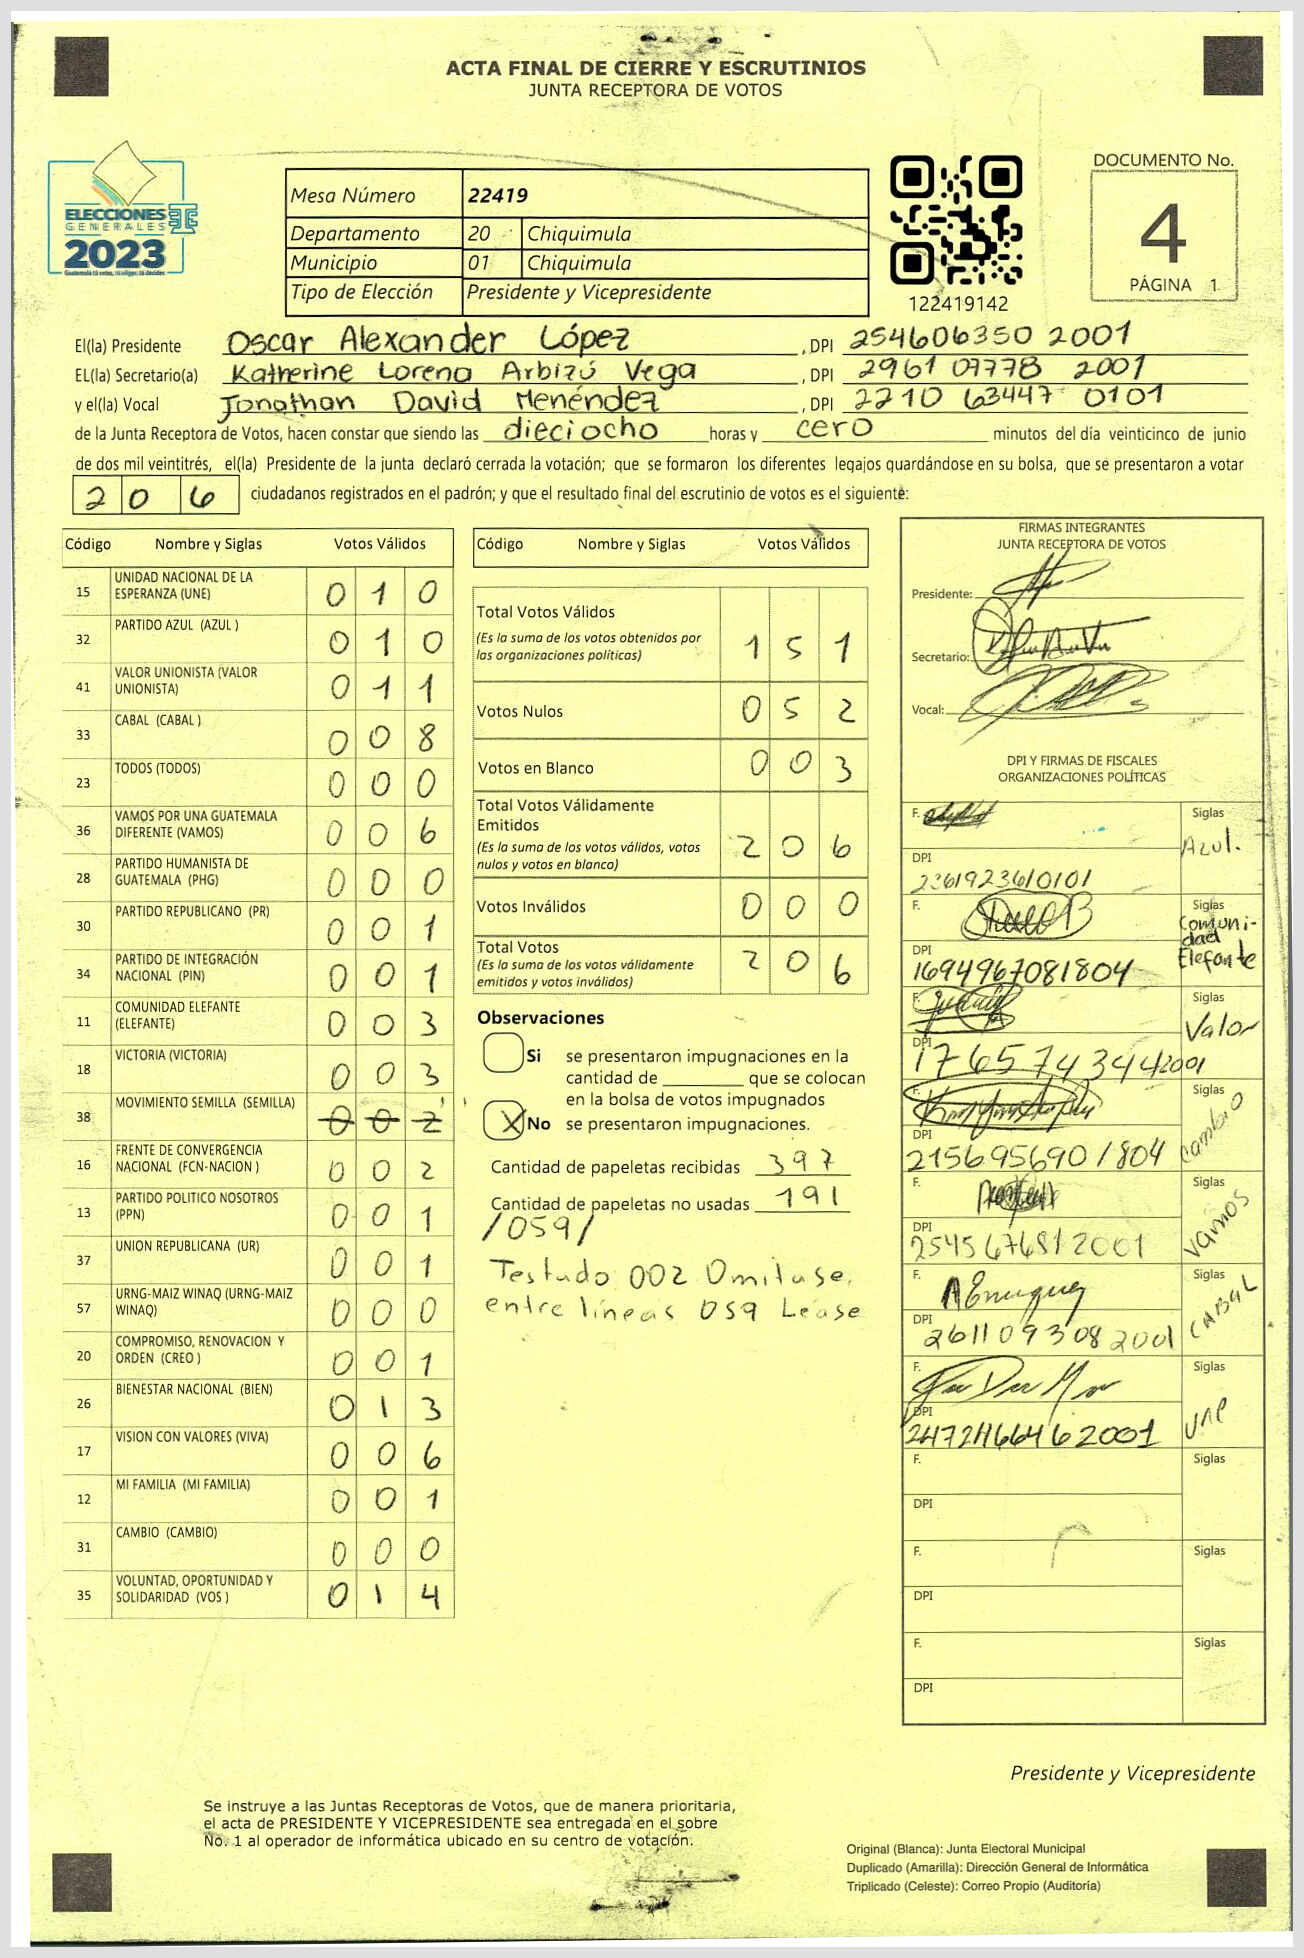 ACTA FINAL DE CIERRE Y ESCRUTINIOS
JUNTA RECEPTORA DE VOTOS
ELECCIONES
GENERALES
2023
Mesa Número 22419
Departamento 20 Chiquimula
Municipio 01 Chiquimula
Tipo de Elección Presidente y Vicepresidente
122419142
DOCUMENTO No.
4
PÁGINA 1
El(la) Presidente Oscar Alexander López , DPI 254606350 2001
EL(la) Secretario(a) Katherine Lorena Arbizú Vega , DPI 2961 07778 2001
y el(la) Vocal Jonathan David Menéndez , DPI 2210 63447 0101
de la Junta Receptora de Votos, hacen constar que siendo las dieciocho horas y cero minutos del día veinticinco de junio
de dos mil veintitrés, el(la) Presidente de la junta declaró cerrada la votación; que se formaron los diferentes legajos guardándose en su bolsa, que se presentaron a votar
2 0 6 ciudadanos registrados en el padrón; y que el resultado final del escrutinio de votos es el siguiente:
Código Nombre y Siglas Votos Válidos
15 UNIDAD NACIONAL DE LA ESPERANZA (UNE) 0 1 0
32 PARTIDO AZUL (AZUL ) 0 1 0
41 VALOR UNIONISTA (VALOR UNIONISTA) 0 1 1
33 CABAL (CABAL ) 0 0 8
23 TODOS (TODOS) 0 0 0
36 VAMOS POR UNA GUATEMALA DIFERENTE (VAMOS) 0 0 6
28 PARTIDO HUMANISTA DE GUATEMALA (PHG) 0 0 0
30 PARTIDO REPUBLICANO (PR) 0 0 1
34 PARTIDO DE INTEGRACIÓN NACIONAL (PIN) 0 0 1
11 COMUNIDAD ELEFANTE (ELEFANTE) 0 0 3
18 VICTORIA (VICTORIA) 0 0 3
38 MOVIMIENTO SEMILLA (SEMILLA) 0 0 2
16 FRENTE DE CONVERGENCIA NACIONAL (FCN-NACION ) 0 0 2
13 PARTIDO POLITICO NOSOTROS (PPN) 0 0 1
37 UNION REPUBLICANA (UR) 0 0 1
57 URNG-MAIZ WINAQ (URNG-MAIZ WINAQ) 0 0 0
20 COMPROMISO, RENOVACION Y ORDEN (CREO ) 0 0 1
26 BIENESTAR NACIONAL (BIEN) 0 1 3
17 VISION CON VALORES (VIVA) 0 0 6
12 MI FAMILIA (MI FAMILIA) 0 0 1
31 CAMBIO (CAMBIO) 0 0 0
35 VOLUNTAD, OPORTUNIDAD Y SOLIDARIDAD (VOS ) 0 1 4
Código Nombre y Siglas Votos Válidos
Total Votos Válidos 1 5 1
(Es la suma de los votos obtenidos por
las organizaciones políticas)
Votos Nulos 0 5 2
Votos en Blanco 0 0 3
Total Votos Válidamente
Emitidos 2 0 6
(Es la suma de los votos válidos, votos
nulos y votos en blanco)
Votos Inválidos 0 0 0
Total Votos 2 0 6
(Es la suma de los votos válidamente
emitidos y votos inválidos)
Observaciones
Si se presentaron impugnaciones en la
cantidad de que se colocan
en la bolsa de votos impugnados
X No se presentaron impugnaciones.
Cantidad de papeletas recibidas 397
Cantidad de papeletas no usadas 191
/059/
Testado 002 Omitase.
entre líneas 059 Léase
FIRMAS INTEGRANTES
JUNTA RECEPTORA DE VOTOS
Presidente:
Secretario:
Vocal:
DPI Y FIRMAS DE FISCALES
ORGANIZACIONES POLÍTICAS
F. Siglas
Azul.
DPI
2361923610101
F. Siglas
Comuni-
dad
Elefante
DPI
1694967081804
F. Siglas
Valor
DPI
1765743442001
F. Siglas
Cambio
DPI
2156956901804
F. Siglas
Vamos
DPI
2545676812001
F. Siglas
CABAL
DPI
2611093082001
F. Siglas
DPI
2472466462001
F. Siglas
DPI
F. Siglas
DPI
F. Siglas
DPI
Presidente y Vicepresidente
Se instruye a las Juntas Receptoras de Votos, que de manera prioritaria,
el acta de PRESIDENTE Y VICEPRESIDENTE sea entregada en el sobre
No. 1 al operador de informática ubicado en su centro de votación.
Original (Blanca): Junta Electoral Municipal
Duplicado (Amarilla): Dirección General de Informática
Triplicado (Celeste): Correo Propio (Auditoría)